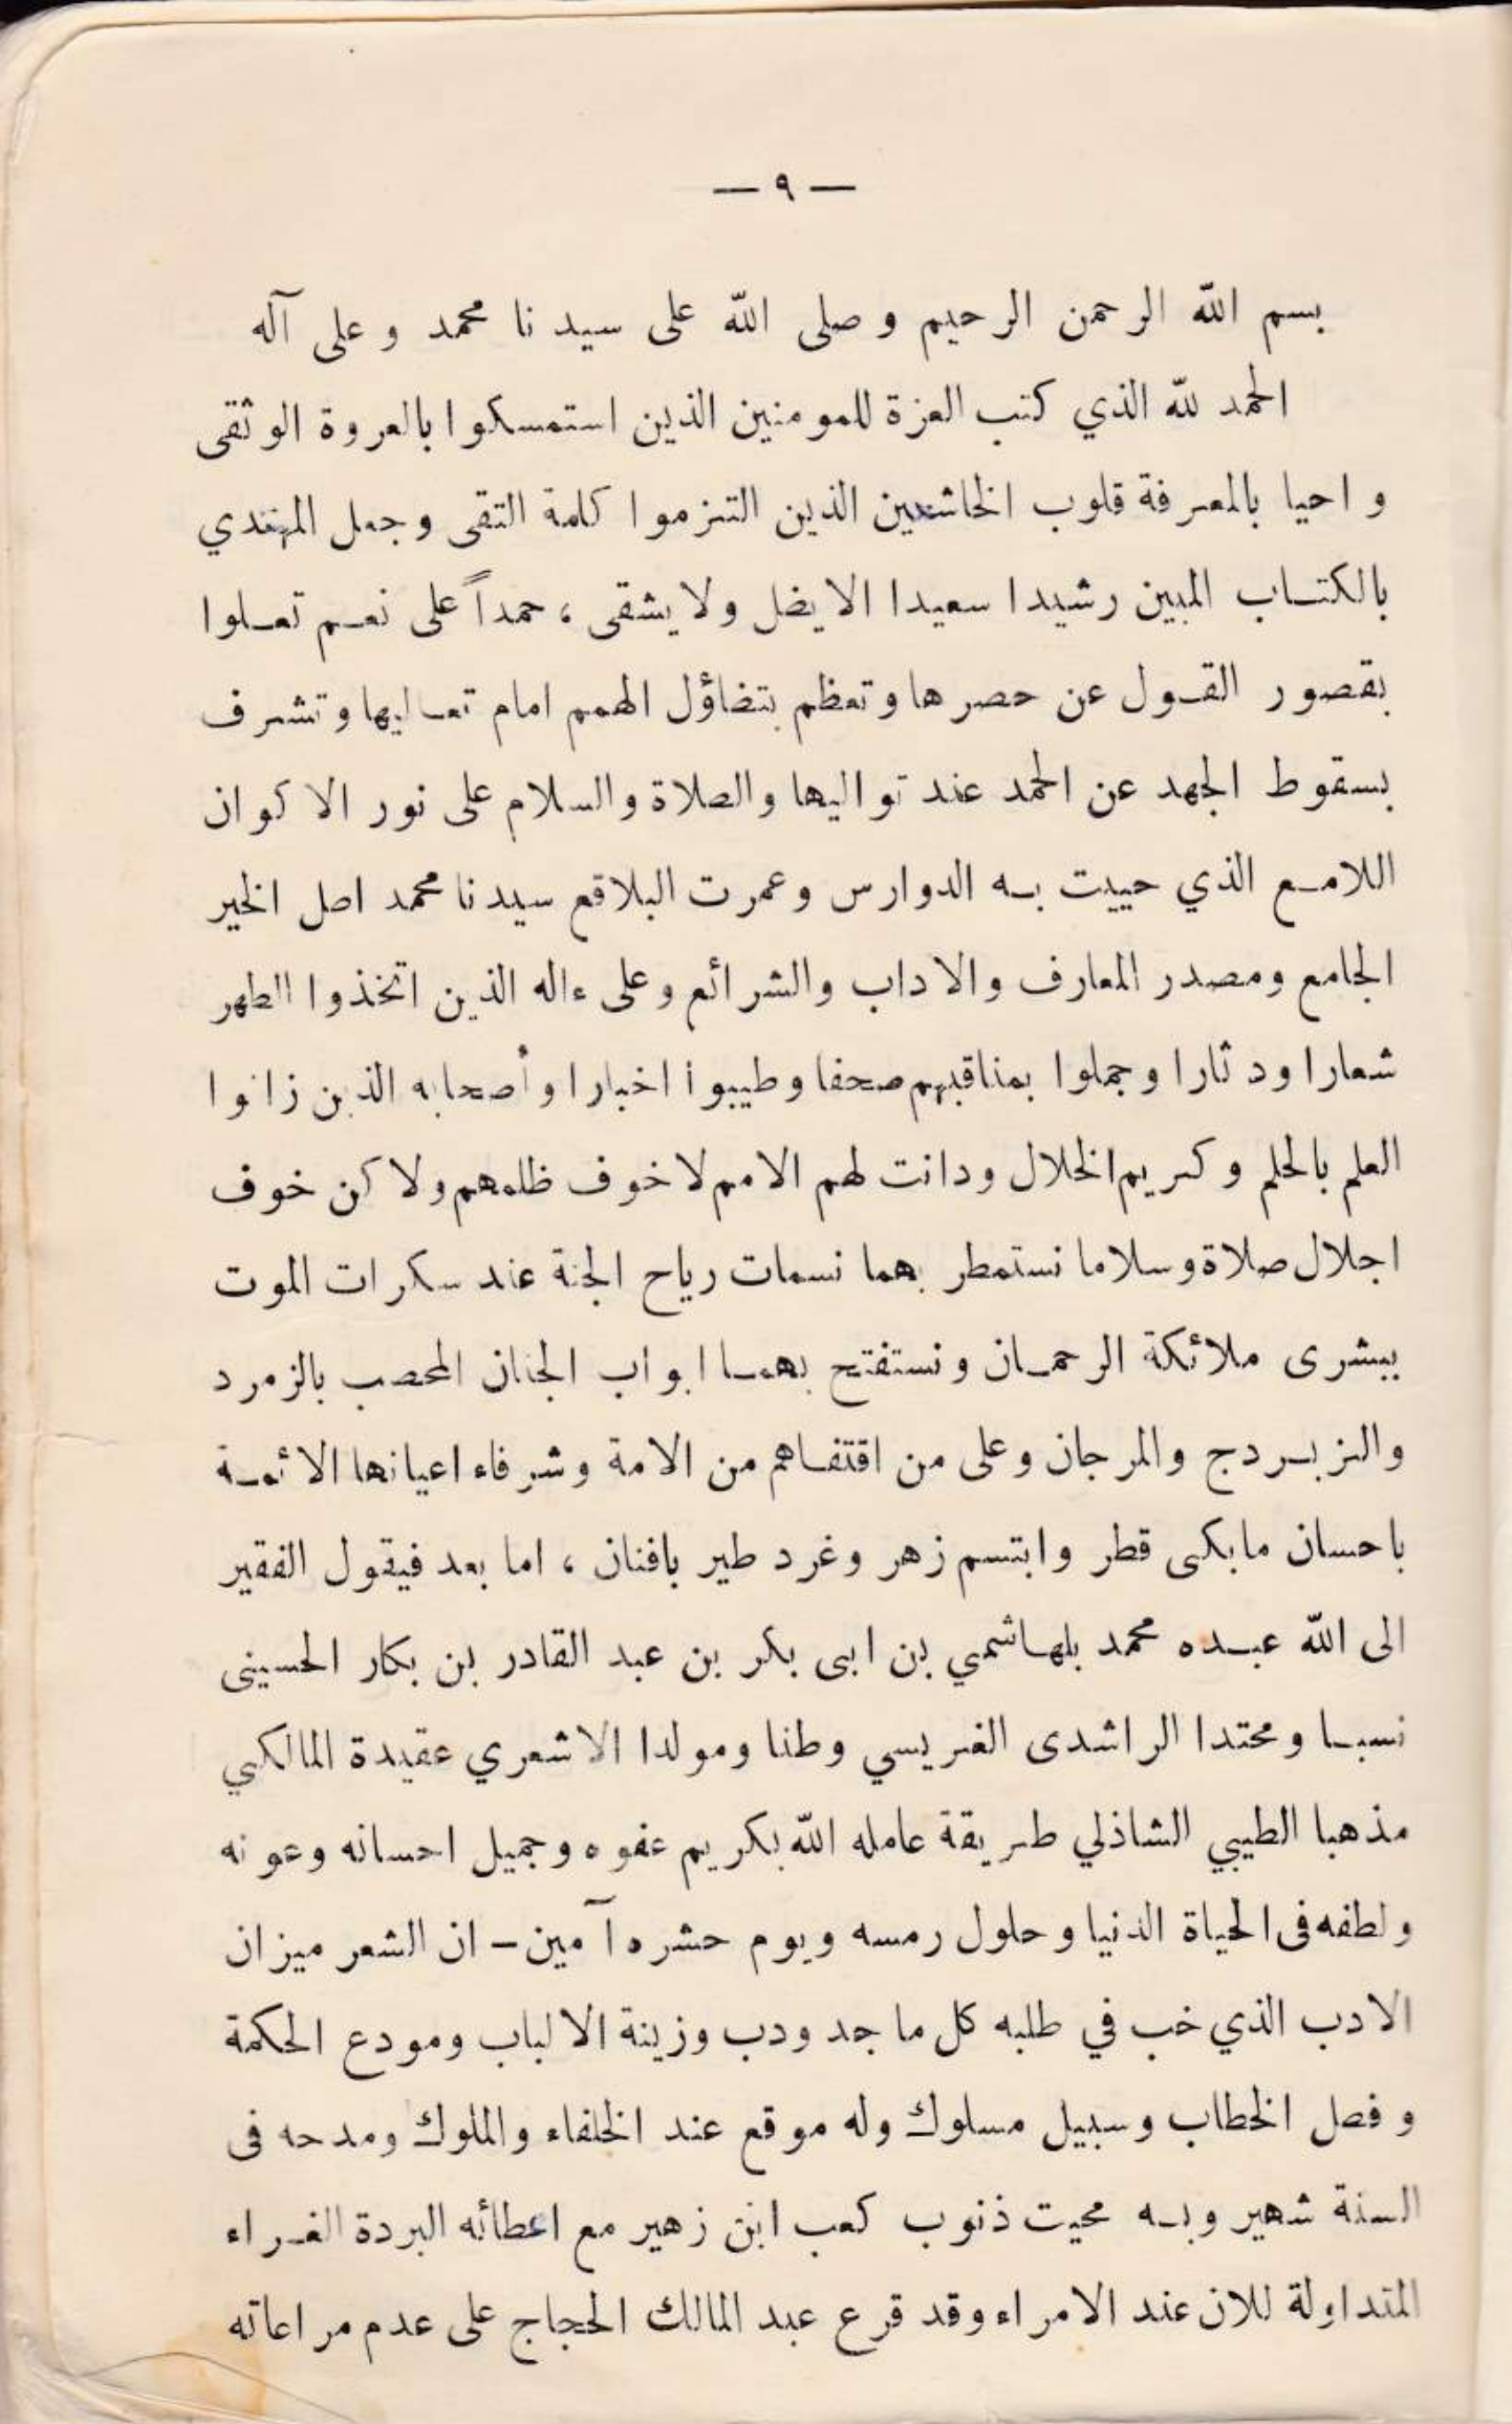 — ٩ —
بسم الله الرحمن الرحيم وصلى الله على سيدنا محمد وعلى آله
الحمد لله الذي كتب العزة للمومنين الذين استمسكوا بالعروة الوثقى
واحيا بالمعرفة قلوب الخاشعين الذين التزموا كلمة التقى وجعل المهتدي
بالكتاب المبين رشيدا سعيدا الا يضل ولا يشقى ، حمداً على نعم تعلوا
بقصور القول عن حصرها وتعظم بتضاؤل الهمم امام تعاليها وتشرف
بسقوط الجهد عن الحمد عند تواليها والصلاة والسلام على نور الاكوان
اللامع الذي حييت به الدوارس وعمرت البلاقع سيدنا محمد اصل الخير
الجامع ومصدر المعارف والاداب والشرائع وعلى ءاله الذين اتخذوا الطهر
شعارا ودثارا وجملوا بمناقبهم صحفا وطيبوا اخبارا وأصحابه الذين زانوا
العلم بالحلم وكريم الخلال ودانت لهم الامم لا خوف ظلمهم ولاكن خوف
اجلال صلاة وسلاما نستمطر بهما نسمات رياح الجنة عند سكرات الموت
ببشرى ملائكة الرحمان ونستفتح بهما ابواب الجنان المحصب بالزمرد
والزبردج والمرجان وعلى من اقتفاهم من الامة وشرفاء اعيانها الائمة
باحسان ما بكى قطر وابتسم زهر وغرد طير بافنان ، اما بعد فيقول الفقير
الى الله عبده محمد بلهاشمي بن ابى بكر بن عبد القادر بن بكار الحسينى
نسبا ومحتدا الراشدى الغريسي وطنا ومولدا الاشعري عقيدة المالكي
مذهبا الطيبي الشاذلي طريقة عامله الله بكريم عفوه وجميل احسانه وعونه
ولطفه فى الحياة الدنيا وحلول رمسه ويوم حشره آمين – ان الشعر ميزان
الادب الذي خب في طلبه كل ما جد ودب وزينة الالباب ومودع الحكمة
وفصل الخطاب وسبيل مسلوك وله موقع عند الخلفاء والملوك ومدحه فى
السنة شهير وبه محيت ذنوب كعب ابن زهير مع اعطائه البردة الغراء
المتداولة للان عند الامراء وقد قرع عبد المالك الحجاج على عدم مراعاته